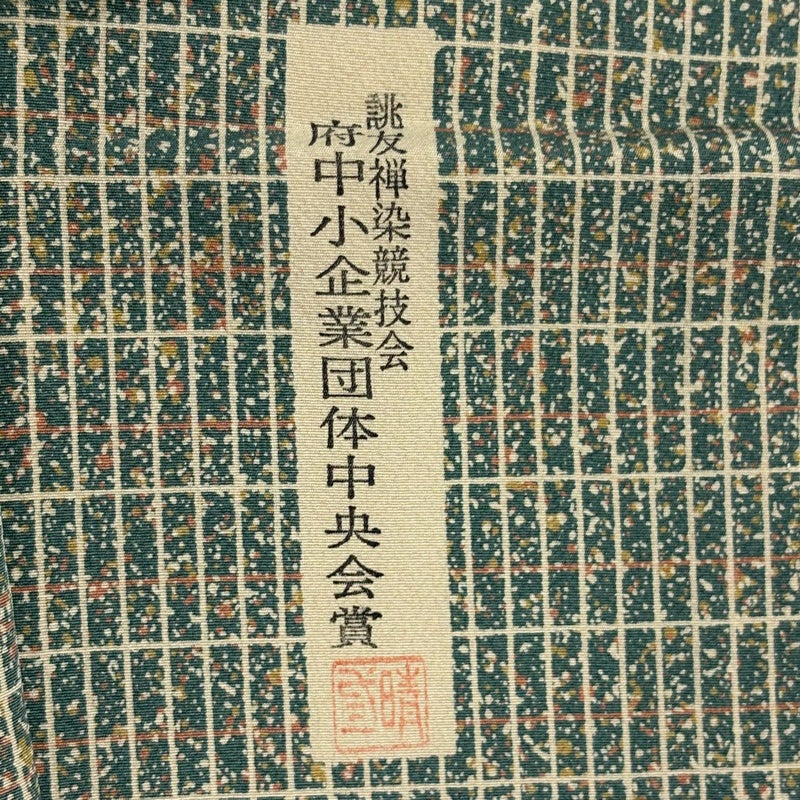 誂友禅染競技会
府中小企業団体中央会賞